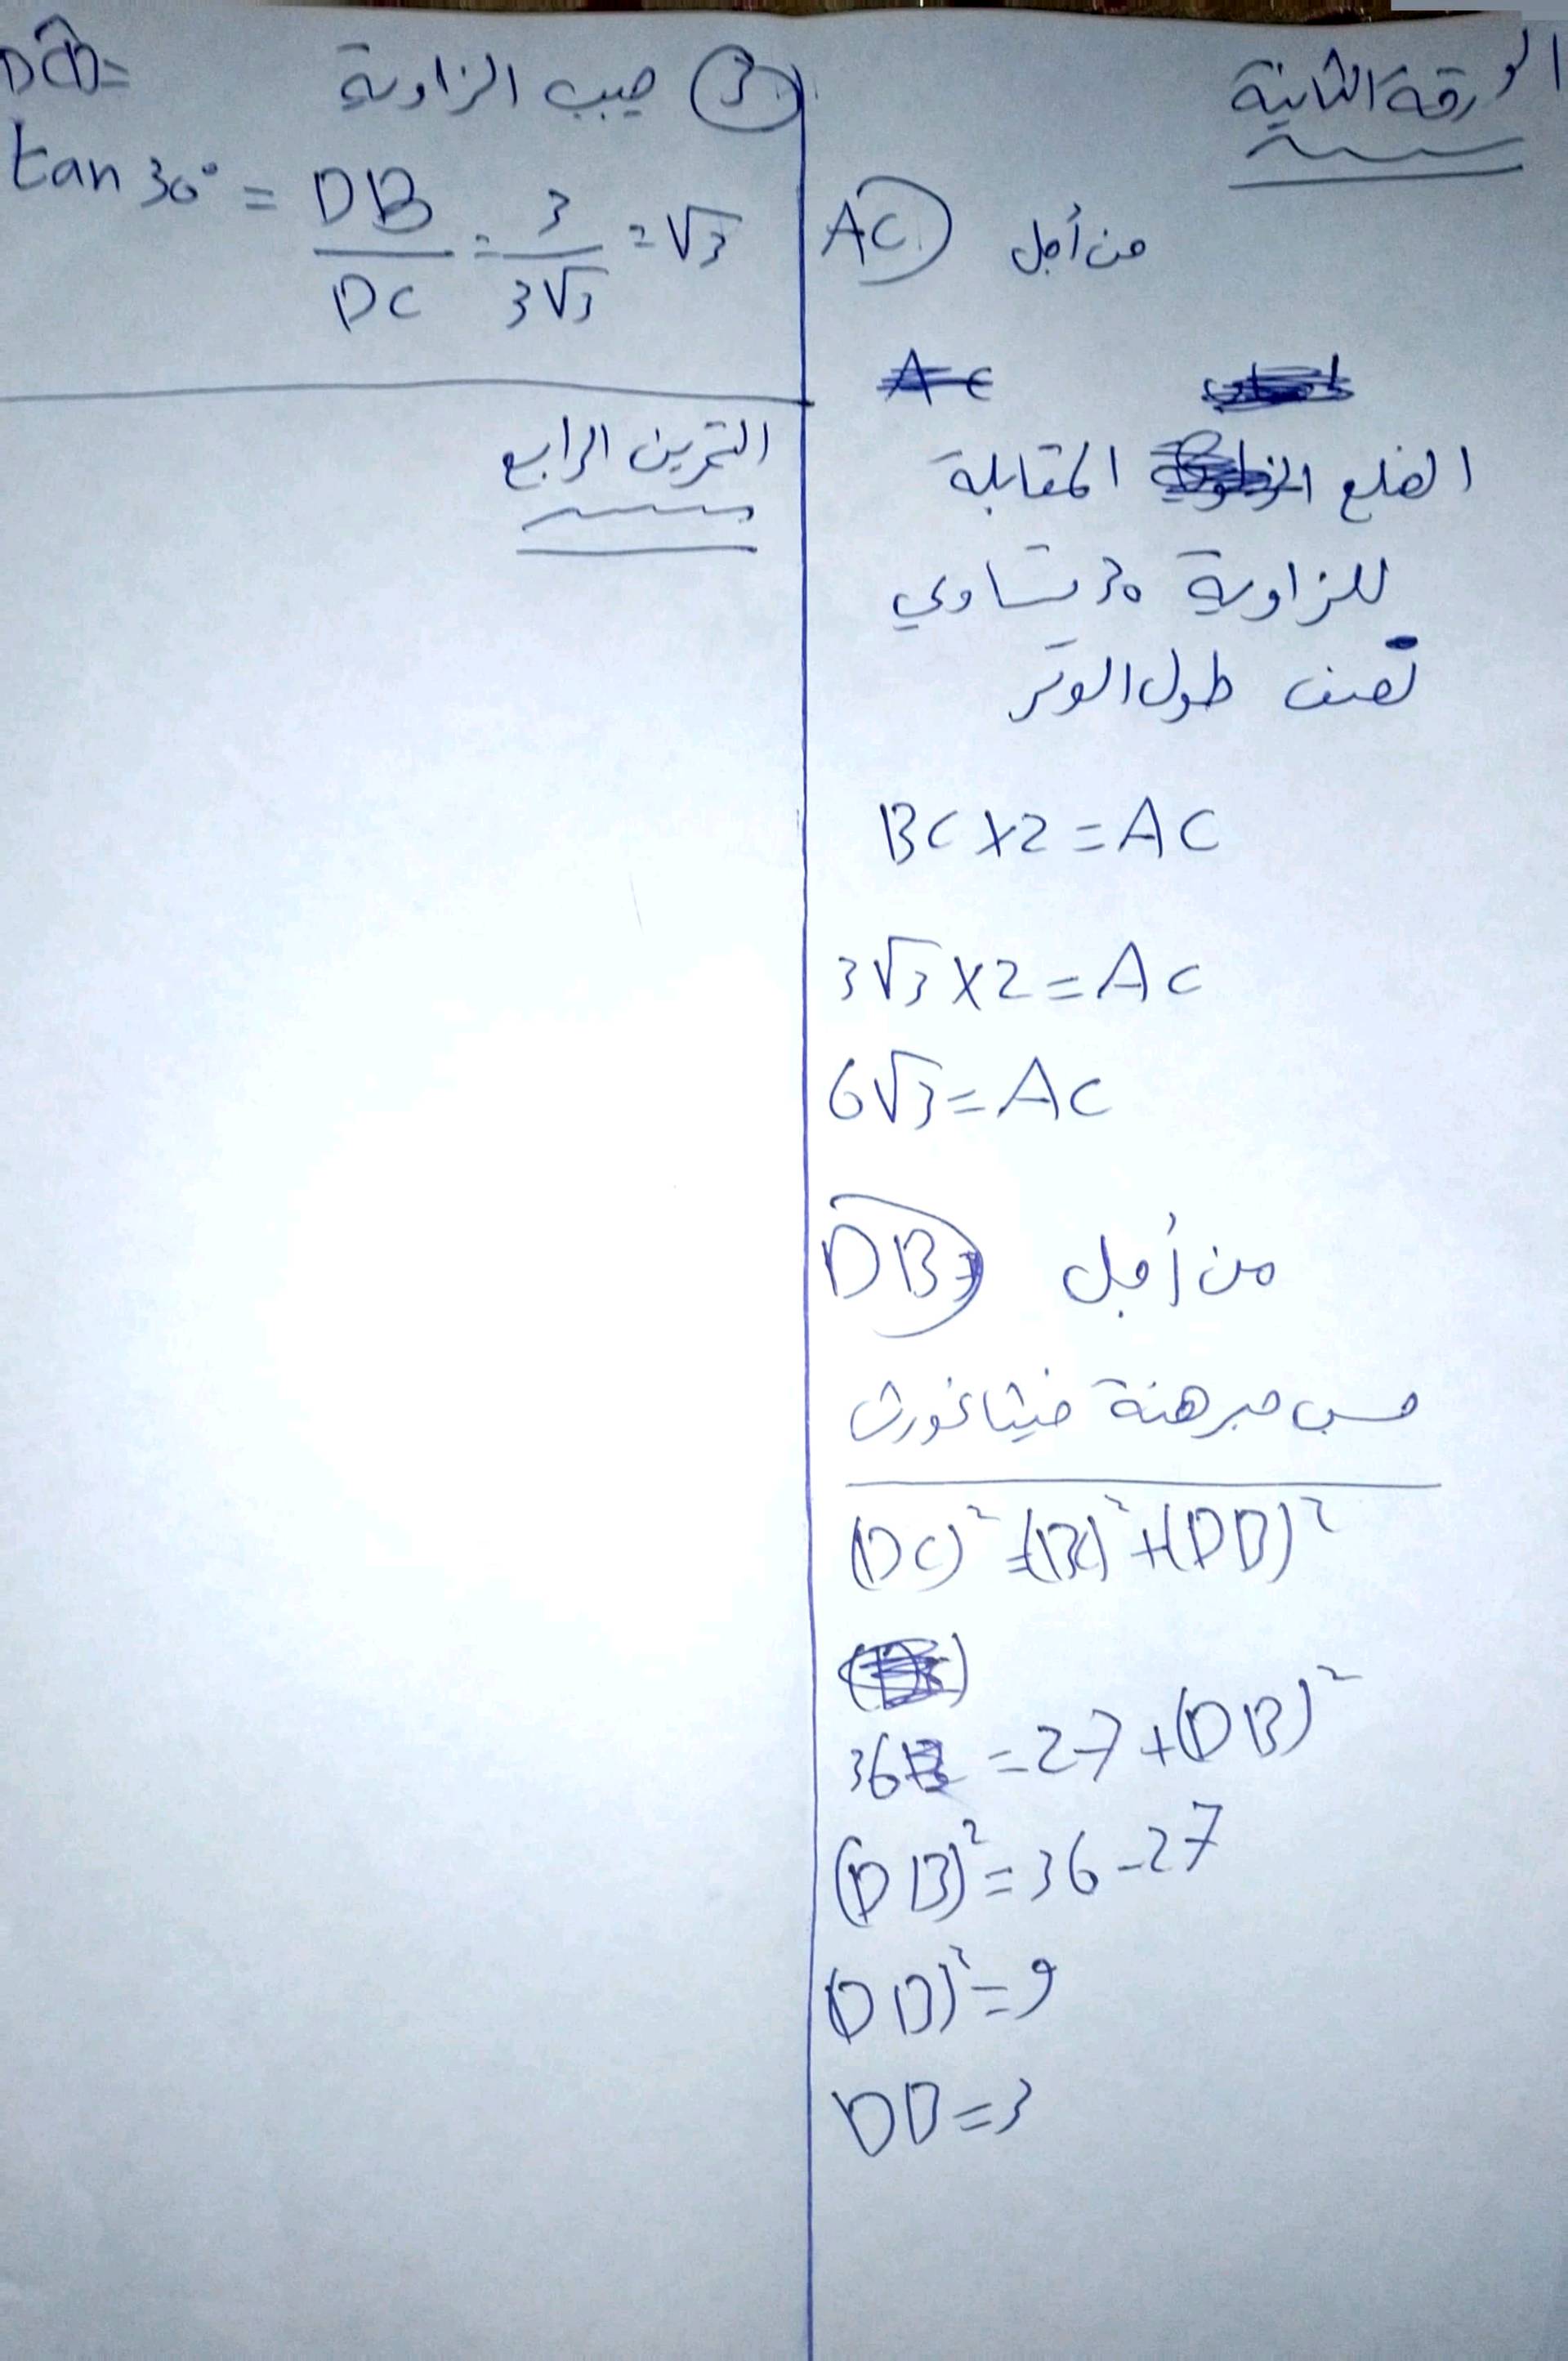 الورقة الثانية
من أجل AC
AC
الضلع المقابلة
للزاوية 30 تساوي
نصف طول الوتر
BC×2=AC
3√3×2=AC
6√3=AC
من أجل DB
حسب مبرهنة فيثاغورث
(DC)²=(BC)²+(DB)²
36=27+(DB)²
(DB)²=36-27
(DB)²=9
DB=3
③ جيب الزاوية DCB=
tan 30° = DB/DC = 3/3√3 = √3
التمرين الرابع